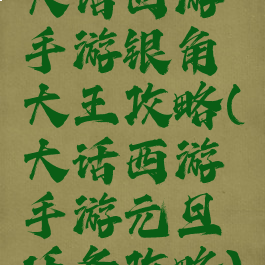 大话西游
手游银角
大王攻略(
大话西游
手游元旦
任务攻略)